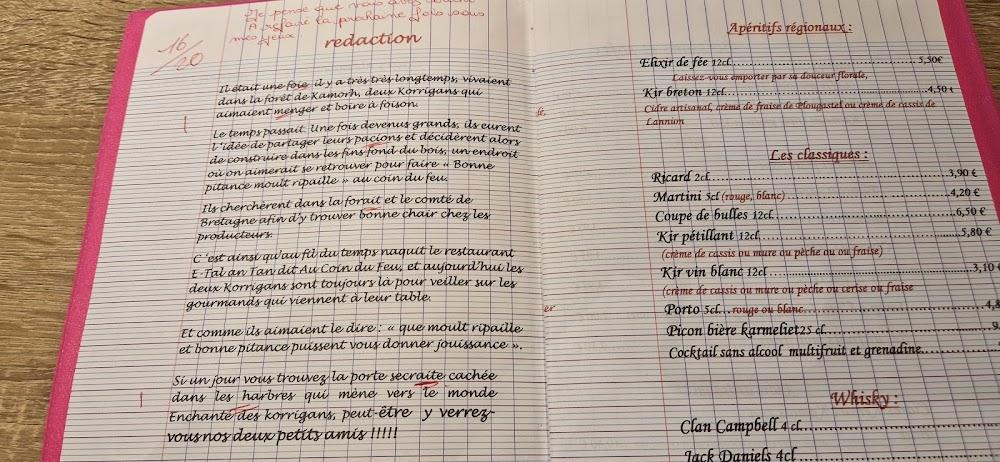 Je pense que vous avez
A refaire la prochaine fois sous
mes yeux
16/20
redaction
Il était une foie il y a très très longtemps, vivaient
dans la forêt de Kamorh, deux Korrigans qui
aimaient menger et boire à foison.
Le temps passait. Une fois devenus grands, ils eurent
L'idée de partager leurs pacions et décidèrent alors
de construire dans les fins fond du bois, un endroit
où on aimerait se retrouver pour faire « Bonne
pitance moult ripaille » au coin du feu.
Ils cherchèrent dans la forait et le comté de
Bretagne afin d'y trouver bonne chair chez les
producteurs.
C'est ainsi qu'au fil du temps naquit le restaurant
E-Tal an Tan dit Au Coin du Feu, et aujourd'hui les
deux Korrigans sont toujours là pour veiller sur les
gourmands qui viennent à leur table.
Et comme ils aimaient le dire : « que moult ripaille
et bonne pitance puissent vous donner jouissance ».
Si un jour vous trouvez la porte secraite cachée
dans les harbres qui mène vers le monde
Enchanté des korrigans, peut-être y verrez-
vous nos deux petits amis !!!!!
Apéritifs régionaux :
Elixir de fée 12cl 5,50€
Laissez-vous emporter par sa douceur florale,
Kir breton 12cl 4,50 €
Cidre artisanal, crème de fraise de Plougastel ou crème de cassis de
Lannion
Les classiques :
Ricard 2cl 3,90 €
Martini 5cl (rouge, blanc) 4,20 €
Coupe de bulles 12cl 6,50 €
Kir pétillant 12cl 5,80 €
(crème de cassis ou mure ou pèche ou ou fraise)
Kir vin blanc 12cl 3,10 €
(crème de cassis ou mure ou pèche ou cerise ou fraise
Porto 5cl...rouge ou blanc 4,8
Picon bière karmeliet25 cl 9
Cocktail sans alcool multifruit et grenadine
Whisky :
Clan Campbell 4 cl
Jack Daniels 4cl